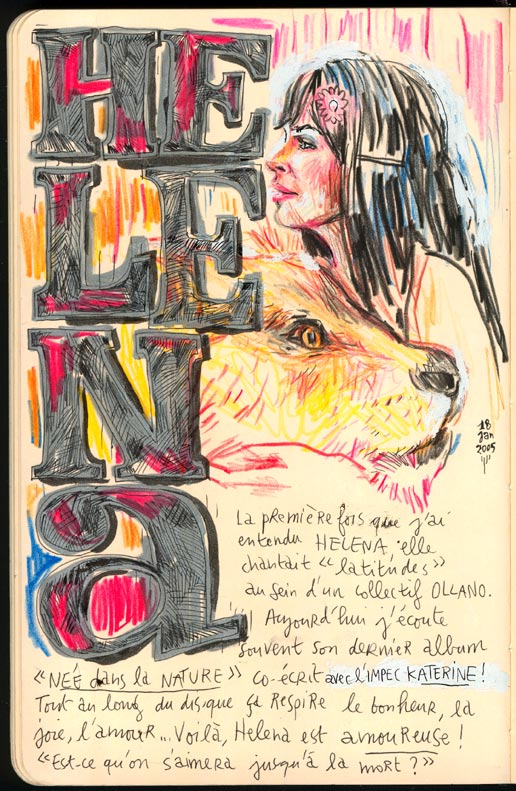 HE
LE
N
a
18
jan
2005
La première fois que j'ai
entendu HELENA, elle
chantait "latitudes"
au sein d'un collectif OLLANO.
Aujourd'hui j'écoute
souvent son dernier album
«NÉE dans la NATURE» co-écrit avec l'IMPEC KATERINE!
Tout au long du disque ça RESPIRE le bonheur, la
joie, l'amour... Voilà, Helena est amoureuse!
«Est-ce qu'on s'aimera jusqu'à la mort?»